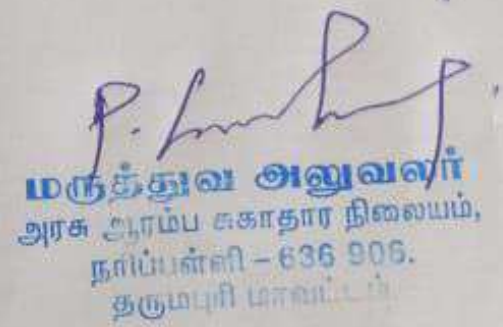 மருத்துவ அலுவலர்
அரசு ஆரம்ப சுகாதார நிலையம்,
636 906.
தருமபுரி மாவட்டம்.